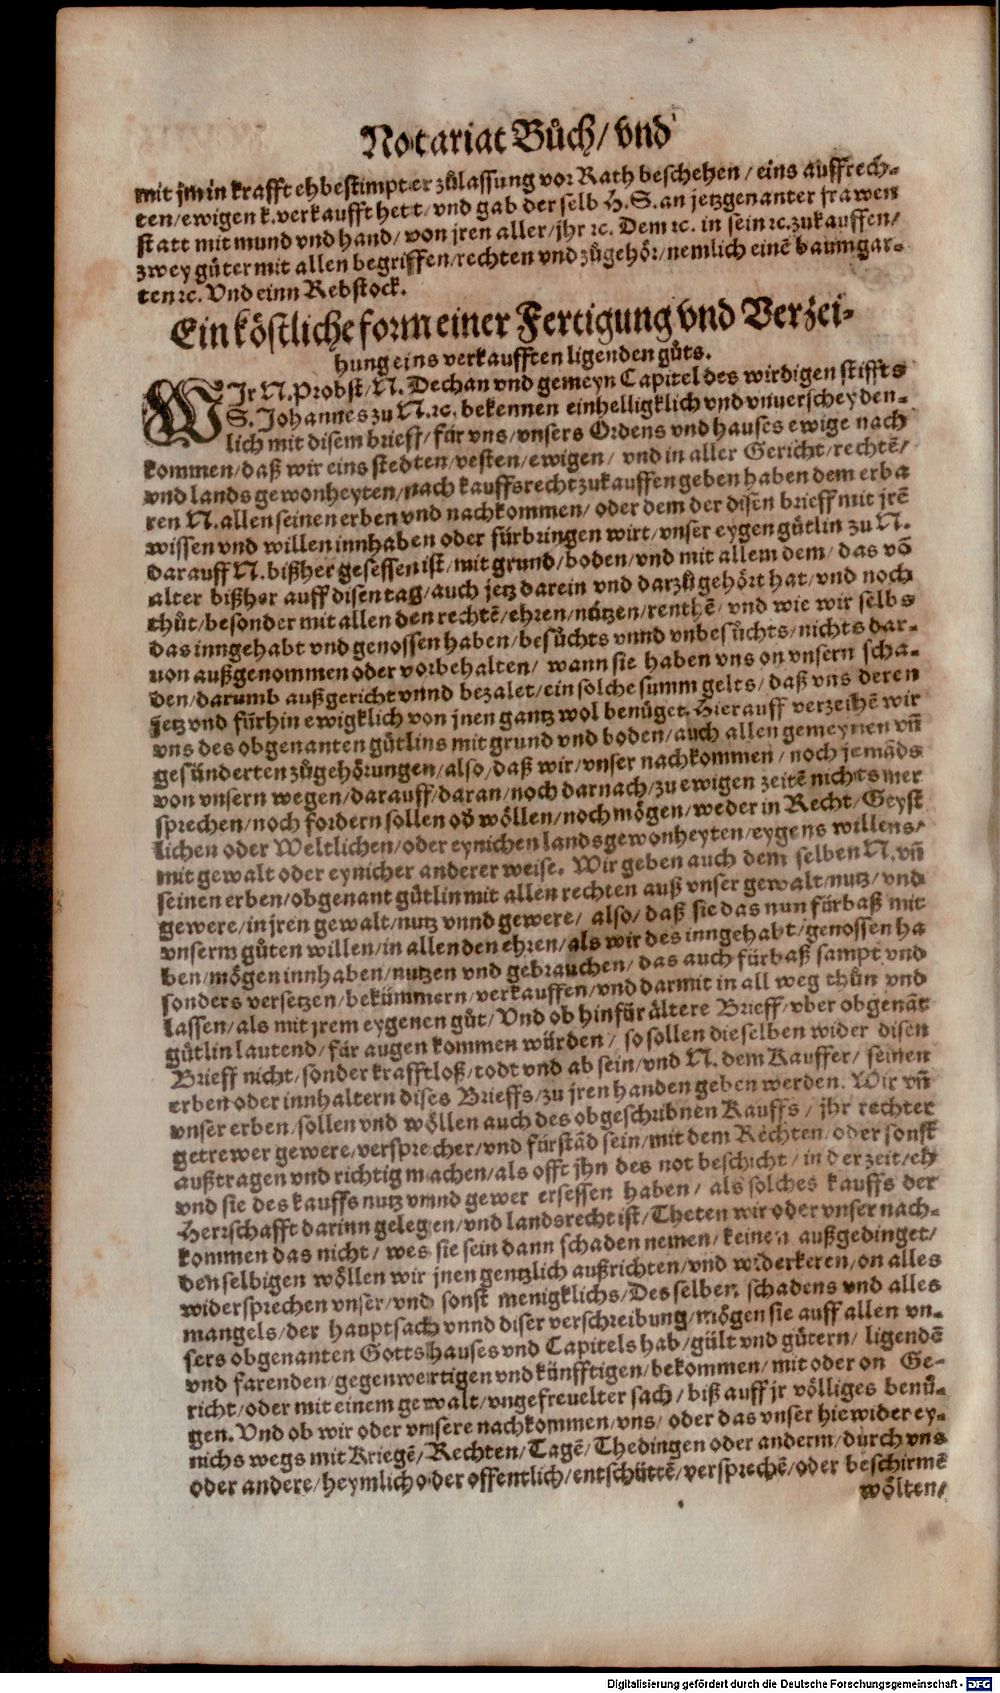 Notariat Bůch/ vnd
mit jm in krafft ehbestimpter zůlassung vor Rath beschehen / eins auffrech-
ten/ewigen k. verkaufft hett/ vnd gab der selb H. S. an jetzgenanter frawen
statt mit mund vnd hand/ von jren aller/ jhr ꝛc. Dem ꝛc. in sein ꝛc. zukauffen/
zwey gůter mit allen begriffen/rechten vnd zůgehör/ nemlich einē baumgar-
ten ꝛc. Vnd einn Rebstock.
Ein köstliche form einer Fertigung vnd Verzei-
hung eins verkaufften ligenden gůts.
WJr N. Probst/ N. Dechan vnd gemeyn Capitel des wirdigen stiffts
S. Johannes zu N. ꝛc. bekennen einhelligklich vnd vnuerscheyden-
lich mit disem brieff/ für vns/ vnsers Ordens vnd hauses ewige nach
kommen/ daß wir eins stedten/ vesten/ ewigen/ vnd in aller Gericht/ rechtē/
vnd lands gewonheyten/ nach kauffsrecht zukauffen geben haben dem erba
ren N. allen seinen erben vnd nachkommen/ oder dem der disen brieff mit jrē
wissen vnd willen innhaben oder fürbringen wirt/ vnser eygen gütlin zu N.
darauff N. bißher gesessen ist/ mit grund/ boden/ vnd mit allem dem/ das vō
alter bißher auff disen tag/ auch jetz darein vnd darzů gehört hat/ vnd noch
thůt/ besonder mit allen den rechtē/ ehren/ nützen/ renthē/ vnd wie wir selbs
das inngehabt vnd genossen haben/ besůchts vnnd vnbesůchts/ nichts dar-
uon außgenommen oder vorbehalten/ wann sie haben vns on vnsern scha-
den/ darumb außgericht vnnd bezalet/ ein solche summ gelts/ daß vns deren
jetz vnd fürhin ewigklich von jnen gantz wol benüget. Hierauff verzeihē wir
vns des obgenanten gütlins mit grund vnd boden/ auch allen gemeynen vñ
gesünderten zůgehörungen/ also/ daß wir/ vnser nachkommen / noch jemāds
von vnsern wegen/ darauff/ daran/ noch darnach/ zu ewigen zeitē nichts mer
sprechen/ noch fordern sollen oď wöllen/ noch mögen/ weder in Recht/ Geyst
lichen oder Weltlichen/ oder eynichen landsgewonheyten/ eygens willens/
mit gewalt oder eynicher anderer weise. Wir geben auch dem selben N. vñ
seinen erben/ obgenant gütlin mit allen rechten auß vnser gewalt/ nutz/ vnd
gewere/ in jren gewalt/ nutz vnnd gewere/ also/ daß sie das nun fürbaß mit
vnserm gůten willen/ in allen den ehren/ als wir des inngehabt/ genossen ha
ben/ mögen innhaben/ nutzen vnd gebrauchen/ das auch fürbaß sampt vnd
sonders versetzen/ bekümmern/ verkauffen/ vnd darmit in all weg thůn vnd
lassen/ als mit jrem eygenen gůt/ Vnd ob hinfür ältere Brieff/ vber obgenāt
gütlin lautend/ für augen kommen würden/ so sollen dieselben wider disen
Brieff nicht/ sonder krafftloß/ todt vnd ab sein/ vnd N. dem Kauffer/ seinen
erben oder innhaltern dises Brieffs/ zu jren handen geben werden. Wir vñ
vnser erben/ sollen vnd wöllen auch des obgeschribnen Kauffs / jhr rechter
getrewer gewere/ versprecher/ vnd fürstād sein/ mit dem Rechten/ oder sonst
außtragen vnd richtig machen/ als offt jhn des not beschicht/ in der zeit/ eh
vnd sie des kauffs nutz vnnd gewer ersessen haben/ als solches kauffs der
Herrschafft darinn gelegen/ vnd landsrecht ist/ Theten wir oder vnser nach-
kommen das nicht/ wes sie sein dann schaden nemen/ keinen außgedinget/
den selbigen wöllen wir jnen gentzlich außrichten/ vnd widerkeren/ on alles
widersprechen vnser/ vnd sonst menigklichs/ Desselben schadens vnd alles
mangels/ der hauptsach vnnd diser verschreibung/ mögen sie auff allen vn-
sers obgenanten Gottshauses vnd Capitels hab/ gült vnd gůtern/ ligendē
vnd farenden/ gegenwertigen vnd künfftigen/ bekommen/ mit oder on Ge-
richt/ oder mit einem gewalt/ vngefreuelter sach/ biß auff jr völliges benü-
gen. Vnd ob wir oder vnsere nachkommen/ vns/ oder das vnser hiewider ey-
nichs wegs mit Kriegē/ Rechten/ Tagē/ Thedingen oder anderm/ durch vns
oder andere/ heymlich oder offentlich/ entschüttē/ versprechē/ oder beschirmē
wölten/
Digitalisierung gefördert durch die Deutsche Forschungsgemeinschaft - DFG